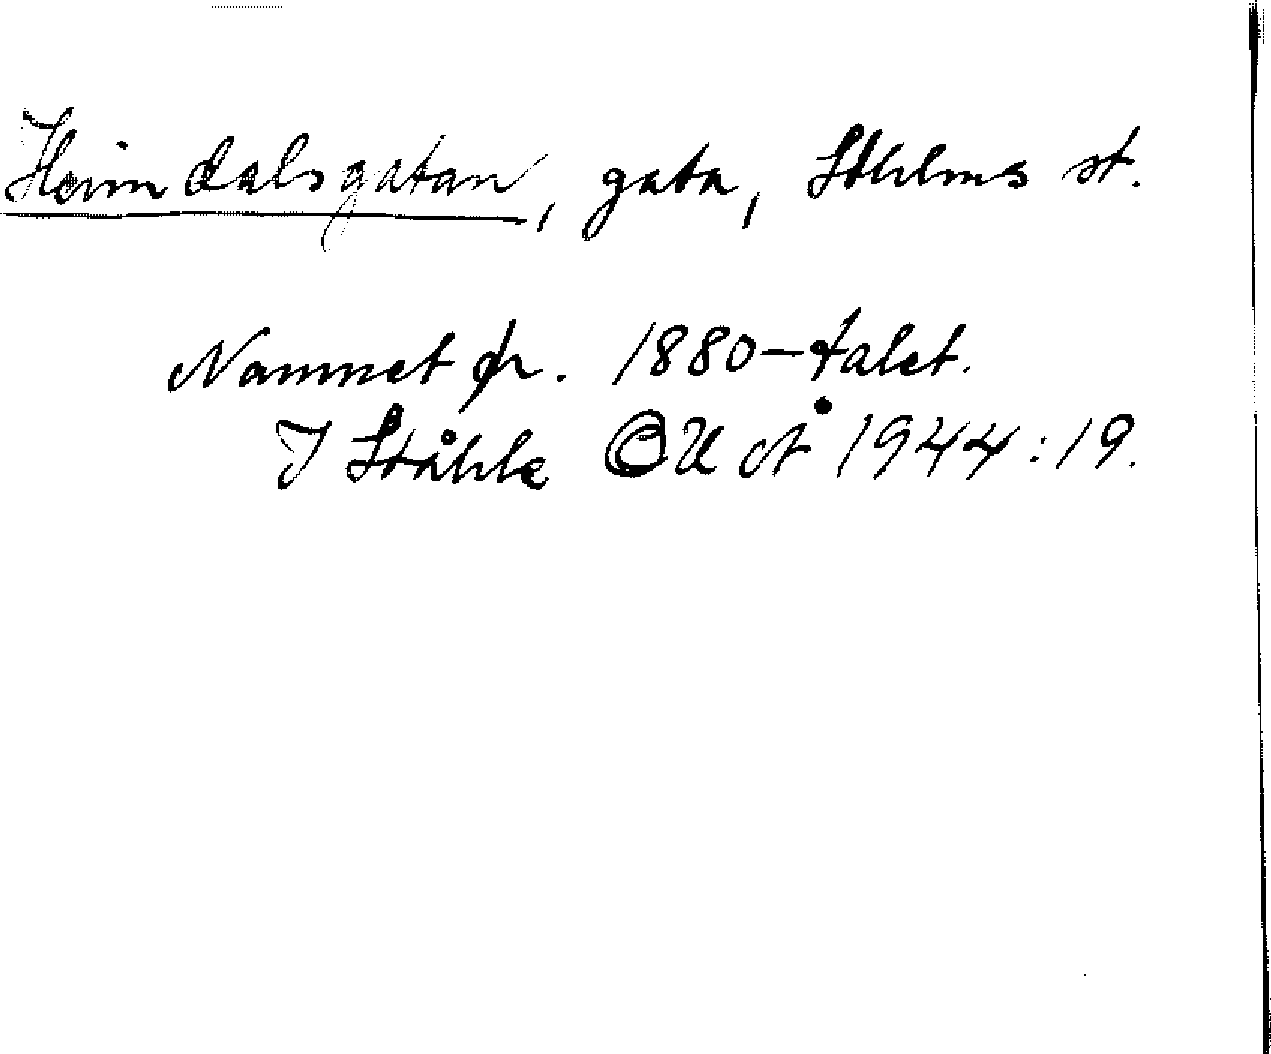 Heimdalsgatan, gata, Sthlms st.
Namnet fr. 1880-talet.
I Ståhle OUÅ 1944:19.